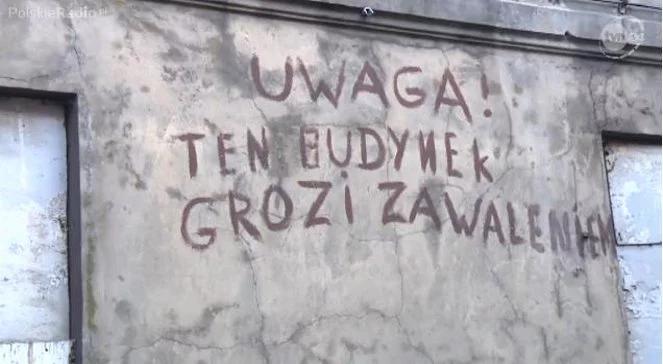 PolskieRadio.pl
tvn24
UWAGA!
TEN BUDYNEK
GROZI ZAWALENIEM